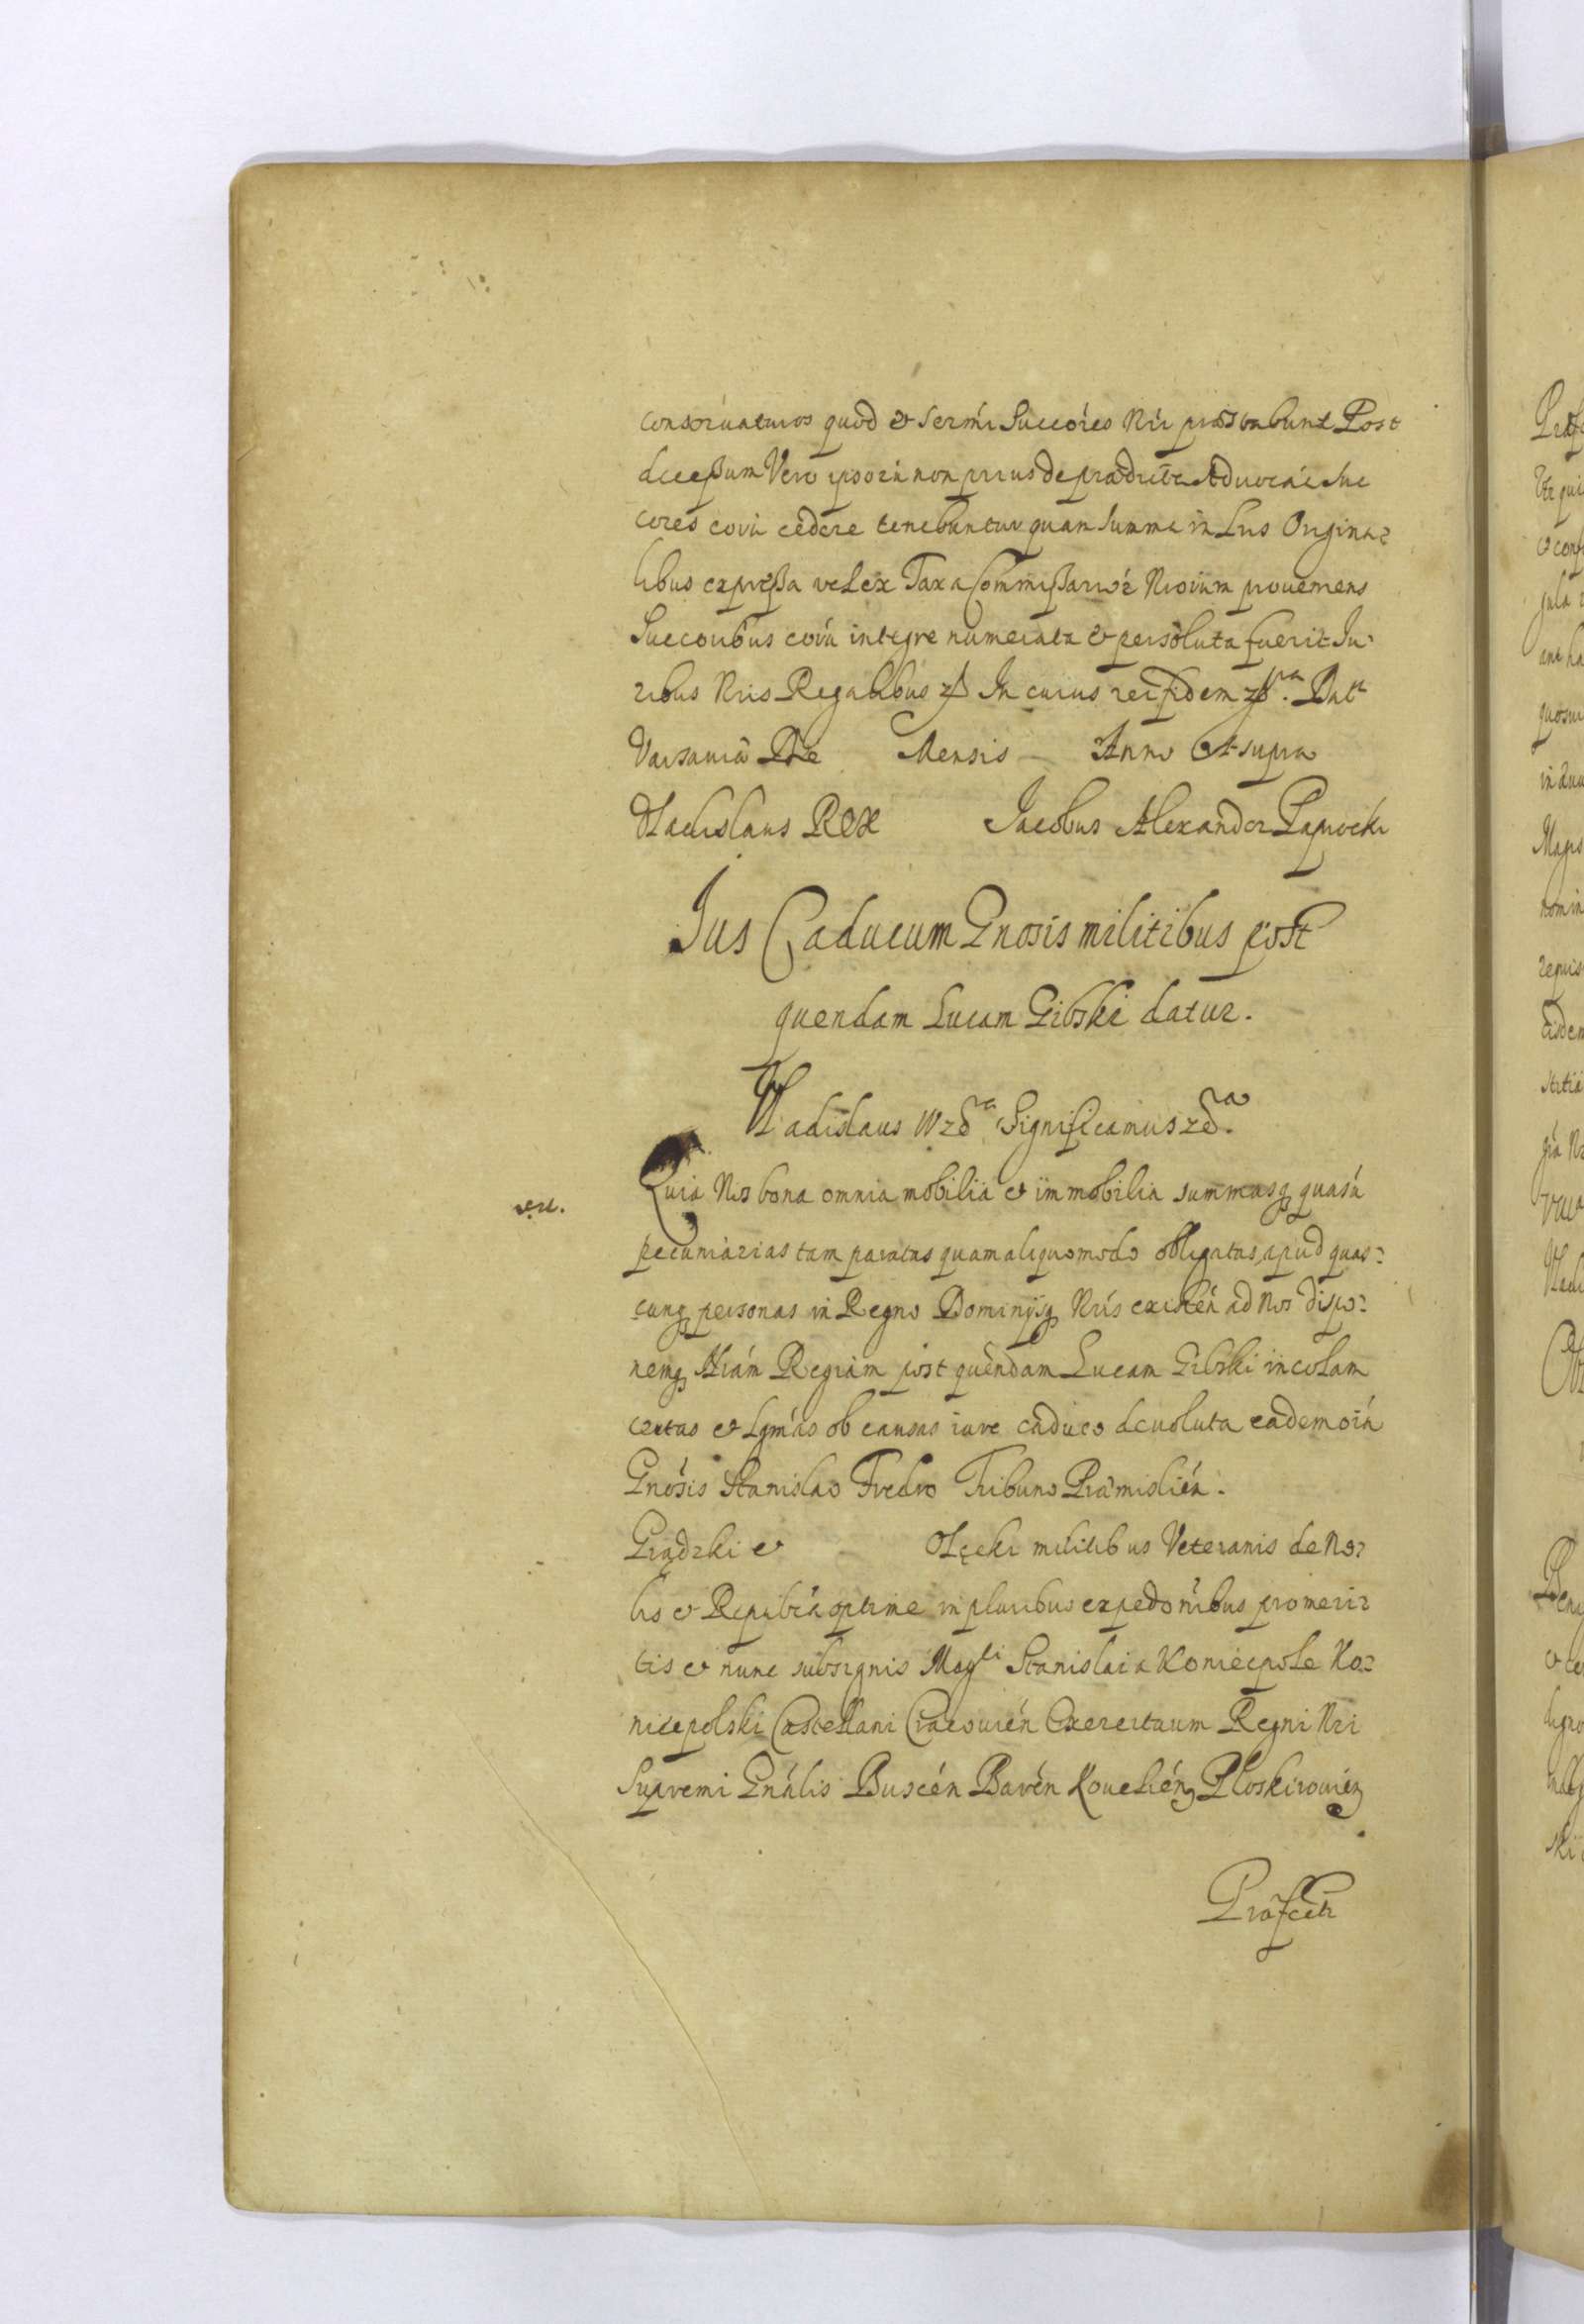 conseruaturos quod et Sermi Succores Nri præstabunt Post
decessum Vero ipsorũ non prius de prædicta Aduocaie Suc
cores eorũ cedere tenebuntur quam Summa in Lris Origina=
libus expressa vel ex Taxa Commissariorũ Nrorum proueniens
Succoribus eorũ integre numerata et persoluta fuerit Iu=
ribus Nris Regalibus In cuius rei fidem Datt
Varsauiæ Die Mensis Anno Vt supra
Vladislaus REX Iacobus Alexander Paprocki
Ius Caducum Gnosis militibus post
quendam Lucam Gibski datur.
Vladislaus IV Significamus
Quia Nos bona omnia mobilia et immobilia summasq quasũ
pecuniarias tam paratas quam aliquomodo obligatas, apud quas=
cunq personas in Regno Dominijsq Nris existeñ ad Nos dispo=
nemq Nram Regiam post quendam Lucam Gibski incolam
certas et Lgmas ob causas iure caduco deuoluta eadem oiã
Gnosis Stanislao Fredro Tribuno Præmislień.
Grądzki et Olęcki militibus Veteranis de No=
bis et Republca optime in pluribus expedonibus promeri=
tis et nunc sub signis Magci Stanislai a Koniecpole Ko=
niecpolski Castellani Cracouień Exercituum Regni Nri
Supremi Gnalis Buscen Baren Kouelień Ploskirouień
Præfecti